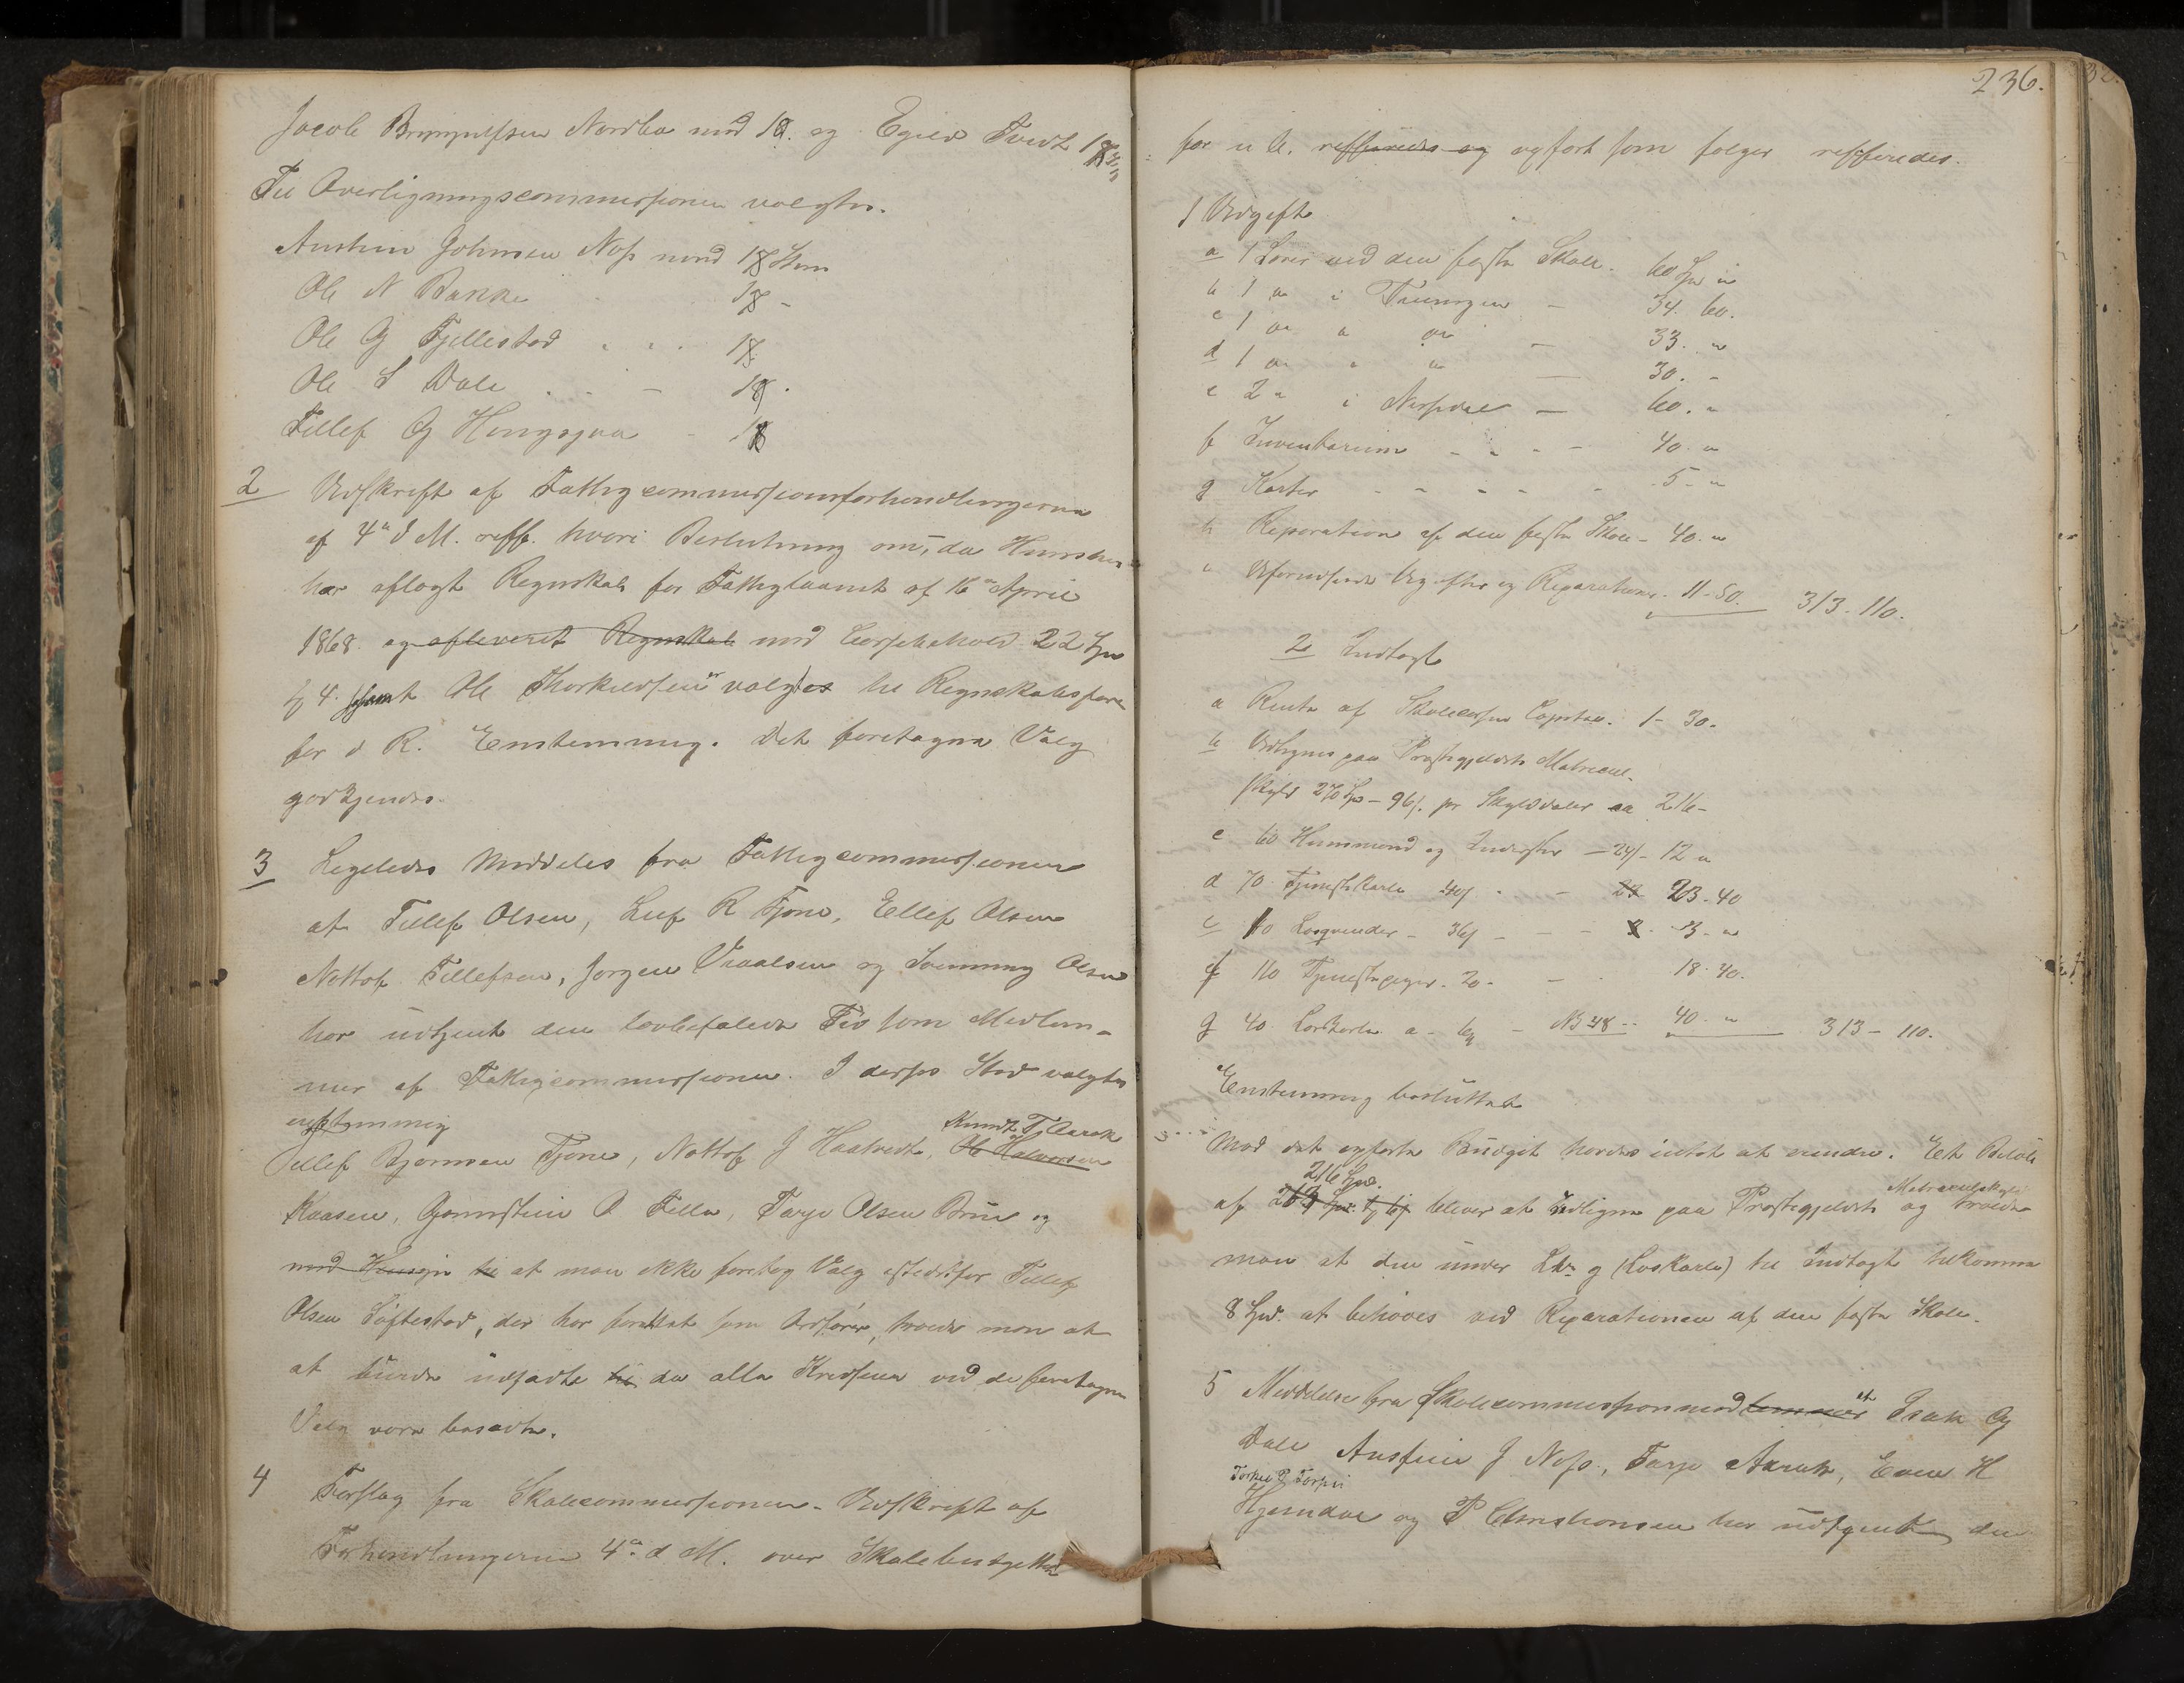 Jacob Brynjulfsen Nordbø med 18. og Egild Tvedt 18
Til Overligningscommissionen valgtes.
Austein Johnsen Næs med 18 Stem
Ole N Bakke 18 -
Ole G Fjellestad . . . 18
Ole S Dale . . - 18.
Tellef G Hongsgaa - 18
2 Udskrift af Fattigcommissionsforhandlingerne
af 4de d M. reff. hvori Beslutning om, da Hu
har aflagt Regnskab for Fattiglaanet af 16de April
1868. og afleveret Regnskab med Cassebehold. 22 Spd
4. samt Ole Thorkildsen valgtes til Regnskabsfører
for d R. Eenstemmig. Det foretagne Valg
godkjendes.
3 Ligeledes Meddeles fra Fattigcommissionen
at Tellef Olsen, Leif R Tjøne, Ellef Olsen
Nottof Tellefsen, Jørgen Vraalsen og Svenning Olsen
har udtjent den lovbefalede Tid som Medlem-
mer af Fattigcommissionen. I deres Sted valgtes
eenstemmig
Knudt T Aarak
Tellef Bjørnsen Tjøne, Nottof J Haatvedt, Ole Halvorsen
Kaasen, Gunstein O Felle, Tarje Olsen Brue og
med Hensyn til at man ikke foretog Valg istedetfor Tellef
Olsen Søftestad, der har forladt som Ordfører, troede man at
at burde udsætte til da alle Kredsene ved de foretagne
Valg vare besadte.
4 Forslag fra Skolecommissionen. Udskrift af
Forhandlingerne 4de d M. over Skolebudgettet
236.
for u A. refferedes og opført som følger refferedes.
1 Udgift
a 1 Lærer ved den faste Skole. 60 Spd "
b 1 " i Treungen - 34. 60.
c 1 " " " - 33. "
d 1 " " " - 30. -
e 2 " i Nissedal - 60. "
f Inventarium - - - - 40. "
g Karter - - - - - 5 - "
h Reparation af den faste Skole - 40. "
i Uforudseede Udgifter og Reparationer - 11-50. 313-110.
2 Indtægt
a Rente af Skolecassens Capital. 1-30.
b Udlignes paa Præstegjeldets Matricul-
skyld 270 Spd - 96 s. pr Skylddaler aa 216-
c 60 Husmænd og Inderster - 24 s - 12 "
d 70 Tjenestekarle 40 s - - 23 23-40
e 10 Løsqvinder - 36 s - - - 3 - "
f 110 Tjenestepiger. 20 - - 18.40.
g 40 Løskarle a - - N3 48 - 40. " 313-110.
Eenstemmig besluttet
Mod det opførte Budget havdes intet at erindre. Et Beløb
216 Spd. Matriculskyld
af 213 Spd. bliver at udligne paa Præstegjeldets og troede
man at den under Ltr g (Løskarle) til Indtægt tilkomne
8 Spd. at behøves ved Reparationen af den faste Skole.
5 Meddelelse fra Skolecommissionmedlemmer at Isak G
Dale Austein J Næs, Tarje Aarak, Even H
Hjemdal og P Christiansen har udtjent den